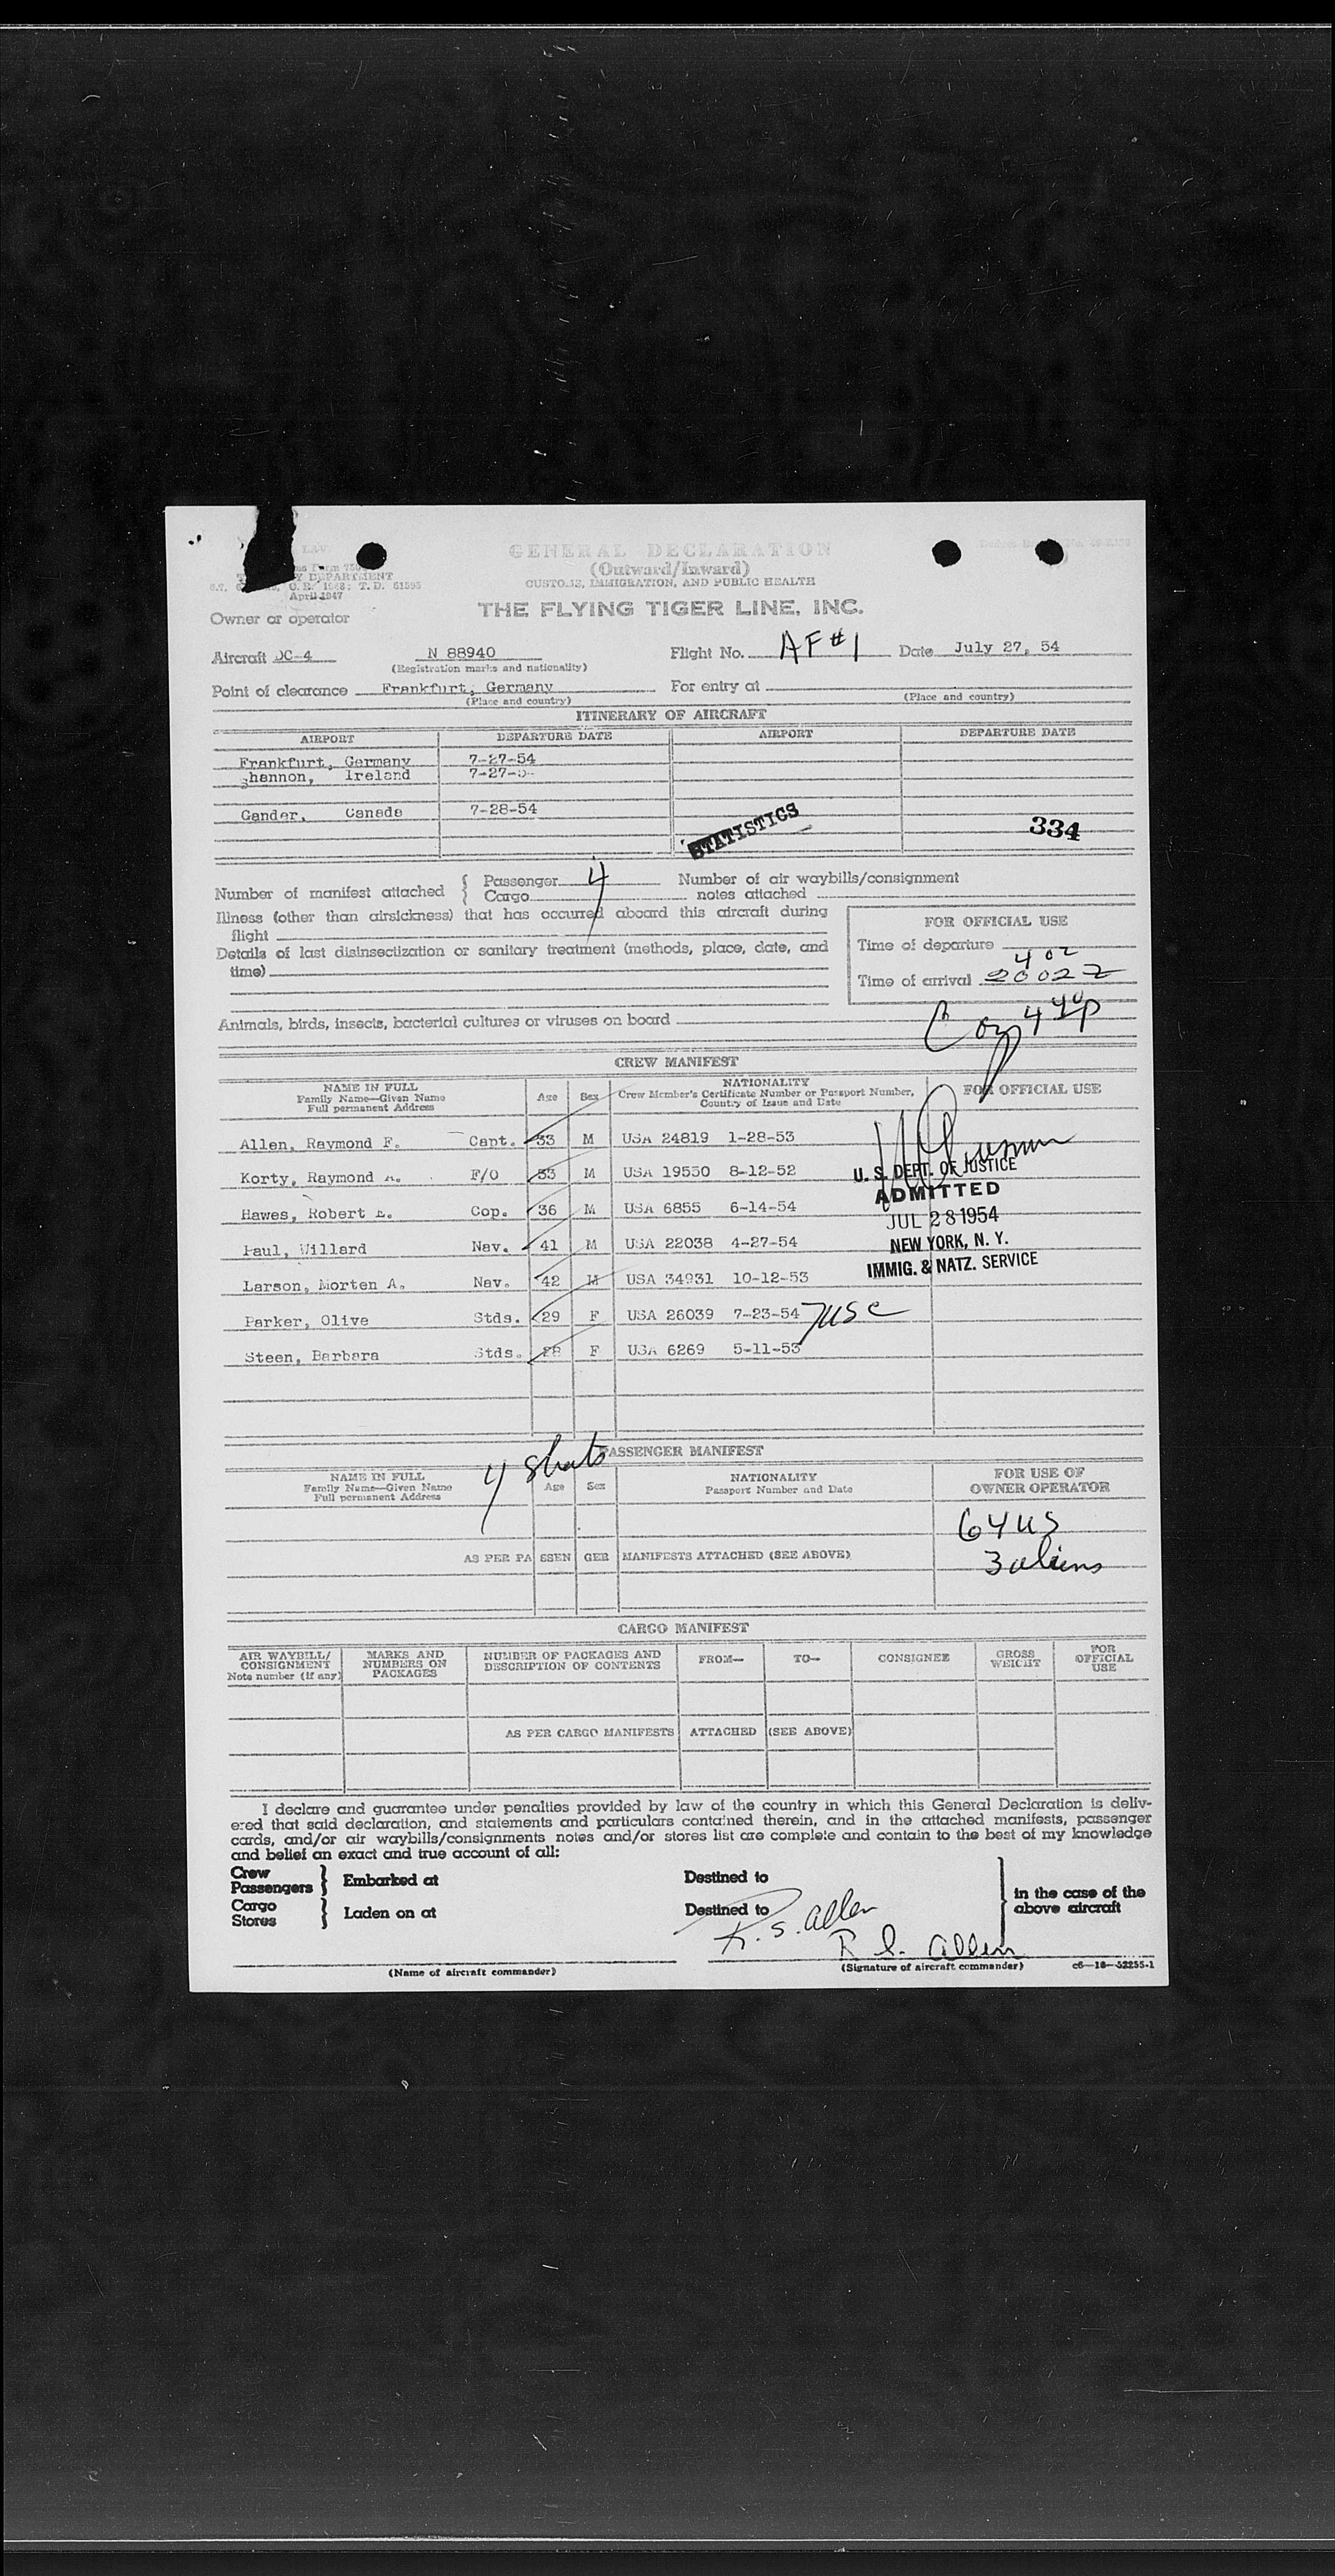 GENERAL DECLARATION
(Outward/Inward)
CUSTOMS, IMMIGRATION, AND PUBLIC HEALTH
DEPARTMENT
T.D. 51595
April 1947
THE FLYING TIGER LINE, INC.
Owner or operator
Aircraft DC-4 N 88940 Flight No. AF#1 Date July 27, 54
(Registration marks and nationality)
Point of clearance Frankfurt, Germany For entry at
(Place and country) (Place and country)
ITINERARY OF AIRCRAFT
AIRPORT DEPARTURE DATE AIRPORT DEPARTURE DATE
Frankfurt, Germany 7-27-54
Shannon, Ireland 7-27-5
Gander, Canada 7-28-54
STATISTICS 334
Number of manifest attached { Passenger 4 Number of air waybills/consignment
Cargo notes attached
Illness (other than airsickness) that has occurred aboard this aircraft during
flight
FOR OFFICIAL USE
Details of last disinsectization or sanitary treatment (methods, place, date, and
time)
Time of departure
402
Time of arrival 2002Z
Animals, birds, insects, bacterial cultures or viruses on board
440p
CREW MANIFEST
NAME IN FULL
Family Name—Given Name
Full permanent Address
Age Sex
NATIONALITY
Crew Member's Certificate Number or Passport Number,
Country of Issue and Date
FOR OFFICIAL USE
Allen, Raymond F. Capt. 33 M USA 24819 1-28-53
Korty, Raymond A. F/O 33 M USA 19550 8-12-52
Hawes, Robert E. Cop. 36 M USA 6855 6-14-54
Paul, Willard Nav. 41 M USA 22038 4-27-54
Larson, Morten A. Nav. 42 M USA 34931 10-12-53
Parker, Olive Stds. 29 F USA 26039 7-23-54 7USC
Steen, Barbara Stds. 28 F USA 6269 5-11-53
U. S. DEPT. OF JUSTICE
ADMITTED
JUL 28 1954
NEW YORK, N. Y.
IMMIG. & NATZ. SERVICE
PASSENGER MANIFEST
4 shets
NAME IN FULL
Family Name—Given Name
Full permanent Address
Age Sex
NATIONALITY
Passport Number and Date
FOR USE OF
OWNER OPERATOR
64 US
3 aliens
AS PER PASSENGER MANIFESTS ATTACHED (SEE ABOVE)
CARGO MANIFEST
AIR WAYBILL/
CONSIGNMENT
Note number (if any)
MARKS AND
NUMBERS ON
PACKAGES
NUMBER OF PACKAGES AND
DESCRIPTION OF CONTENTS
FROM— TO— CONSIGNEE
GROSS
WEIGHT
FOR
OFFICIAL
USE
AS PER CARGO MANIFESTS ATTACHED (SEE ABOVE)
I declare and guarantee under penalties provided by law of the country in which this General Declaration is deliv-
ered that said declaration, and statements and particulars contained therein, and in the attached manifests, passenger
cards, and/or air waybills/consignments notes and/or stores list are complete and contain to the best of my knowledge
and belief an exact and true account of all:
Crew
Passengers } Embarked at Destined to
Cargo
Stores } Laden on at Destined to
in the case of the
above aircraft
R. S. Allen
R S. Allen
(Name of aircraft commander) (Signature of aircraft commander) c6—16—52255-1